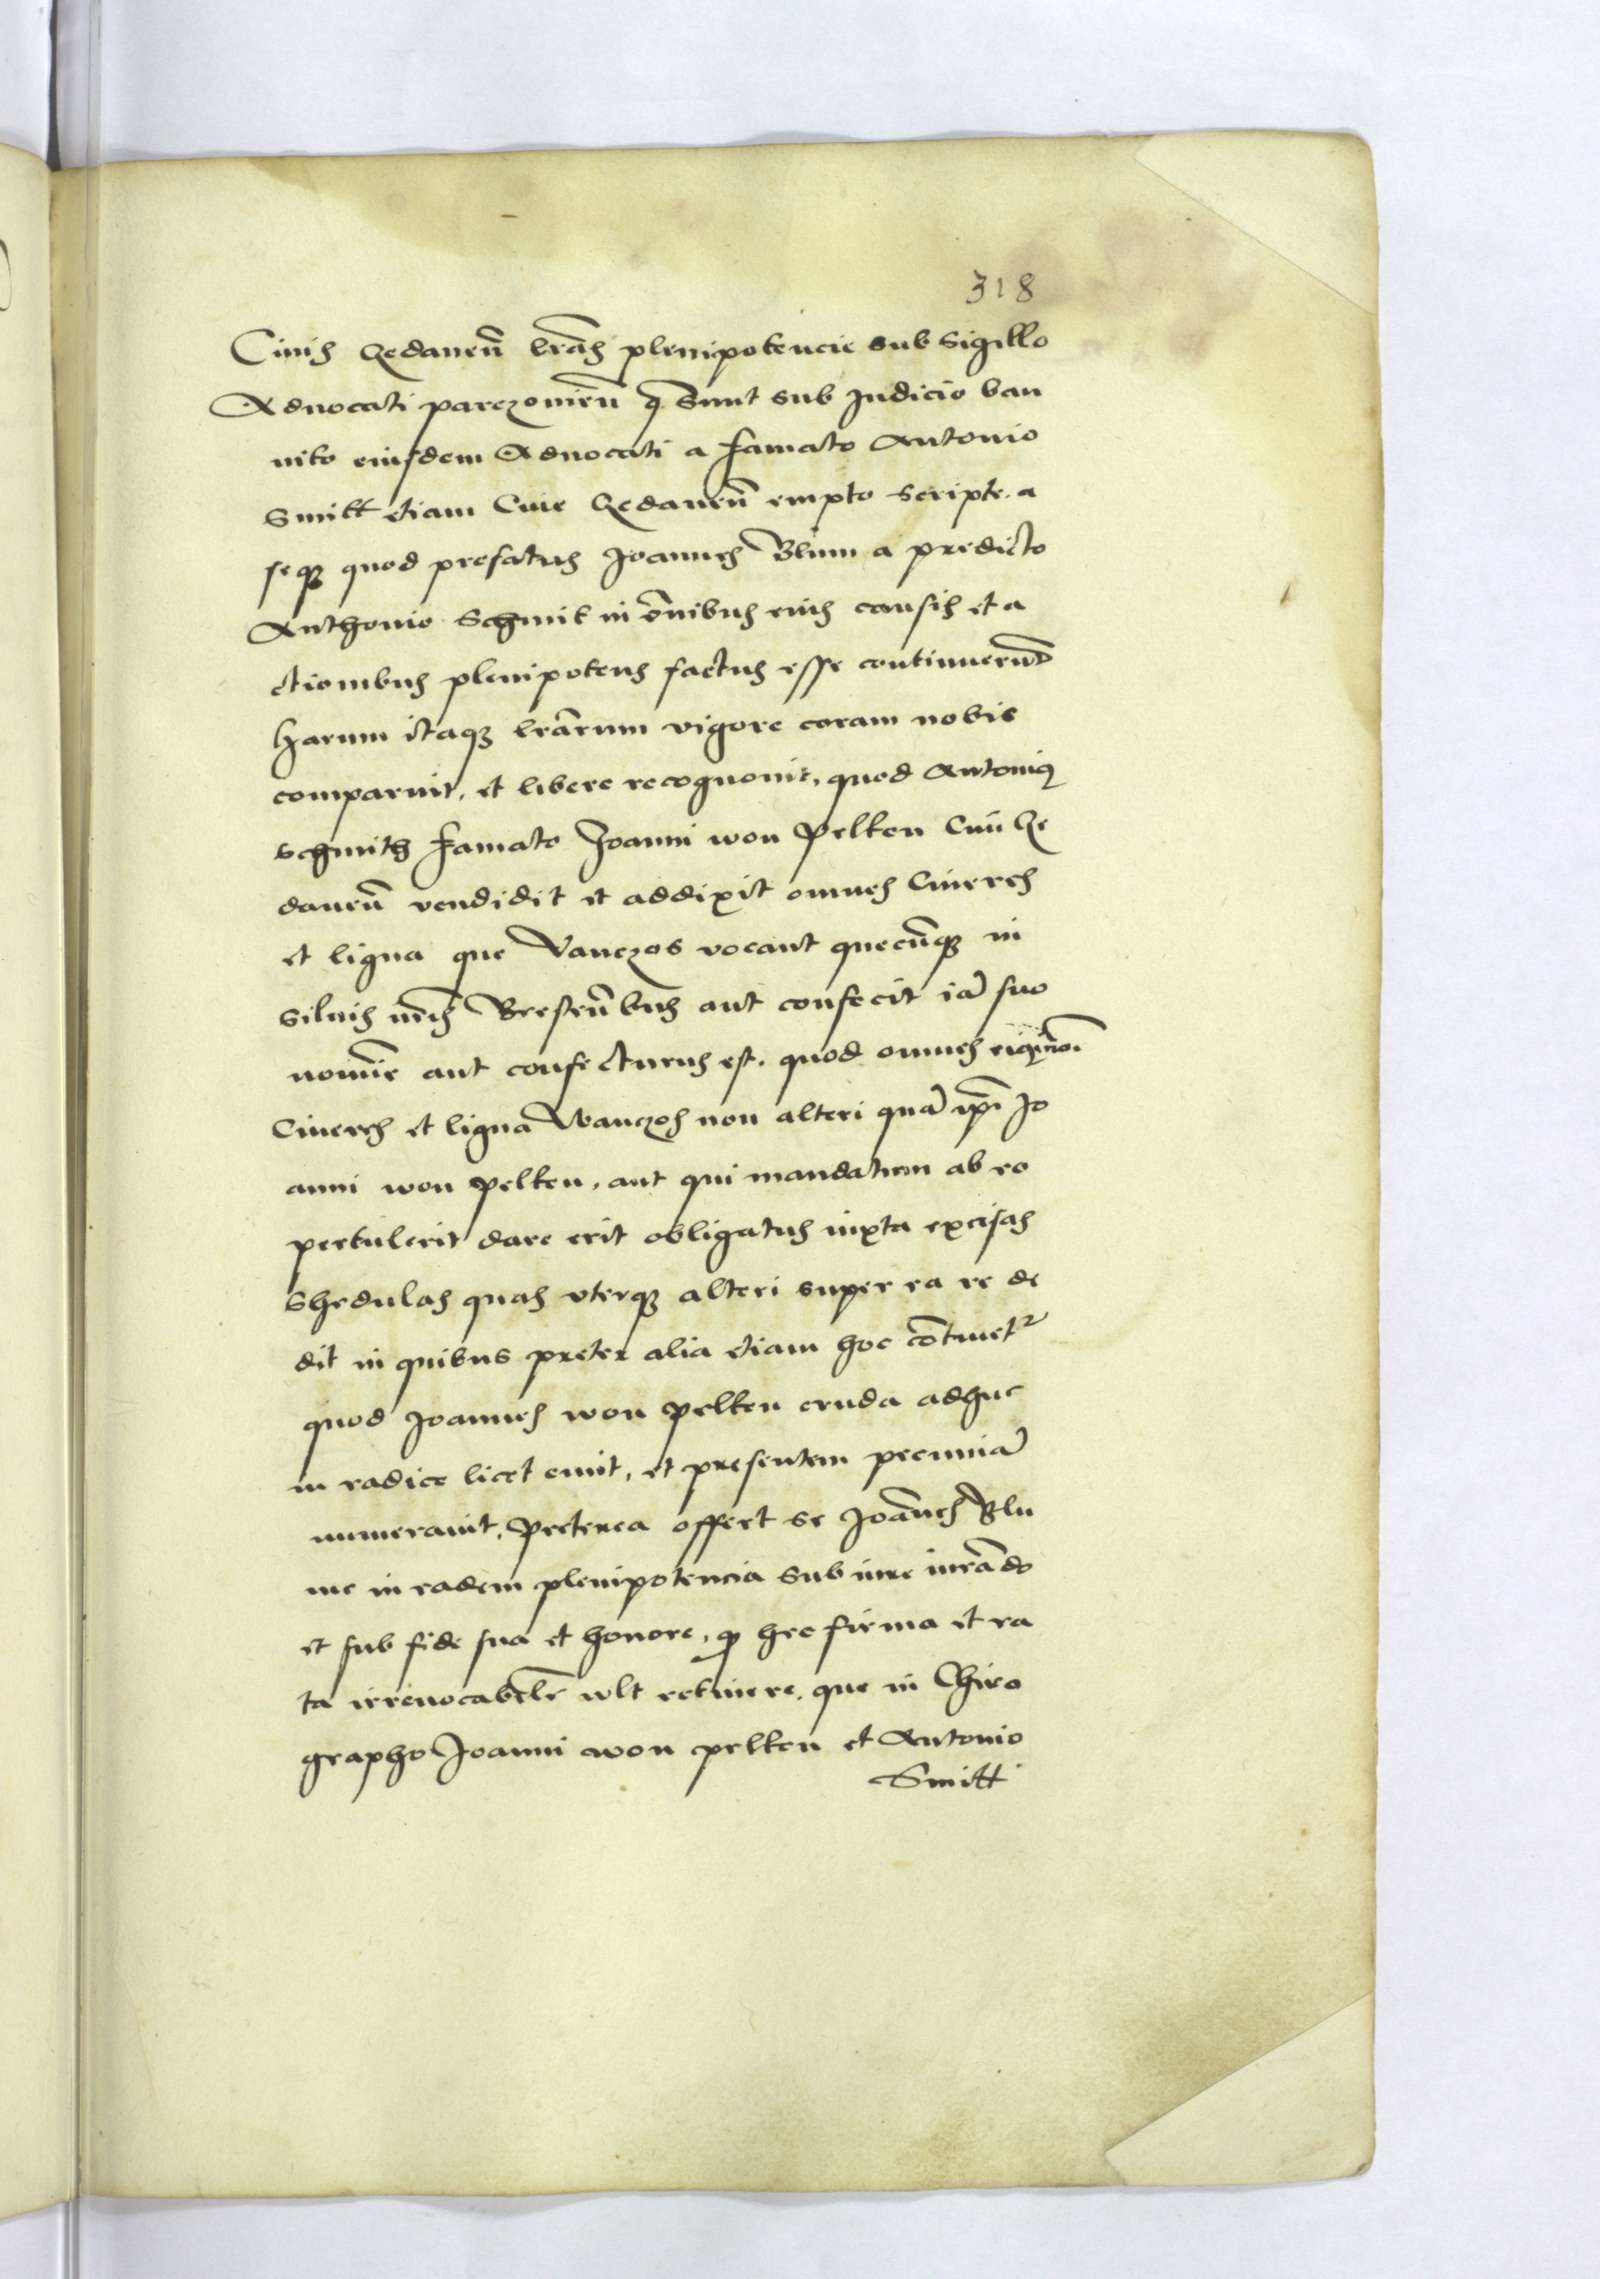 318
Ciuis Gedaneñ lrãs plenipotencie sub Sigillo
Aduocati parczouieñ q̃ sunt sub Iudicio ban
nito eiusdem Aduocati a famato Antonio
Smitt etiam Ciue Gedaneñ empto scripte. a
seqz quod prefatus Joannes Blum a predicto
Anthonio Schmit in õnibus eius causis et a
ctionibus plenipotens factus esse continuerunt
harum itaqz lrãrum vigore coram nobis
comparuit, et libere recognouit, quod Antoniq
Schmith famato Joanni won Pelken Ciui Ge
daneñ vendidit et addixit omnes Cineres
et ligna que Vanczos vocant quecũqz in
Siluis nrĩs Bresteñbus aut confecit iã suo
nomĩe aut confecturus est. quod omnes
Cineres et ligna Wanczos non alteri quã ipĩ Jo
anni won pelken, aut qui mandatum ab eo
pertulerit dare erit obligatus iuxta excisas
Shedulas quas vterqz alteri super ea re de
dit in quibus preter alia etiam hoc cõtinetr
quod Joannes won pelken cruda adhuc
in radice licet emit, et presentem pecuniã
numerauit, preterea offert se Joãnes Blu
me in eadem plenipotencia sub iure iurãdo
et sub fide sua et honore, q̃ hec firma et ra
ta irreuocabilr̃ wlt retinere, que in Chiro
grapho Joanni won pelken et Antonio
Smitt